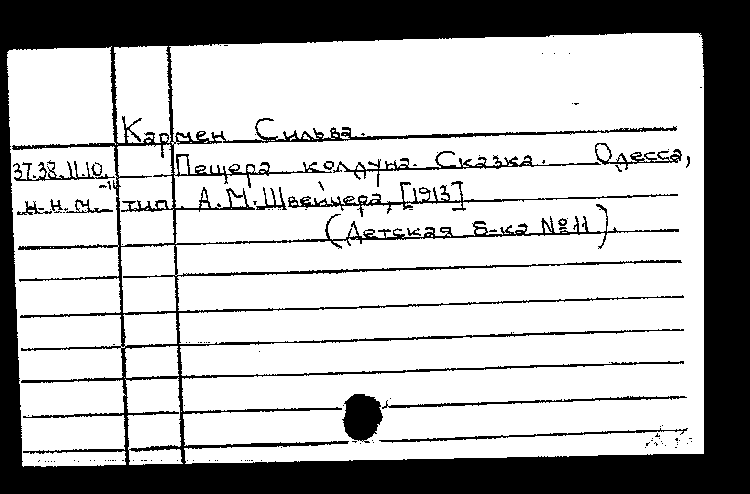 Кармен Сильва.
37.38.11.10. Пещера колдуна. Сказка. Одесса,
н.н.м. тип. А.М.Швейцера, [1913]
(Детская б-ка №11).